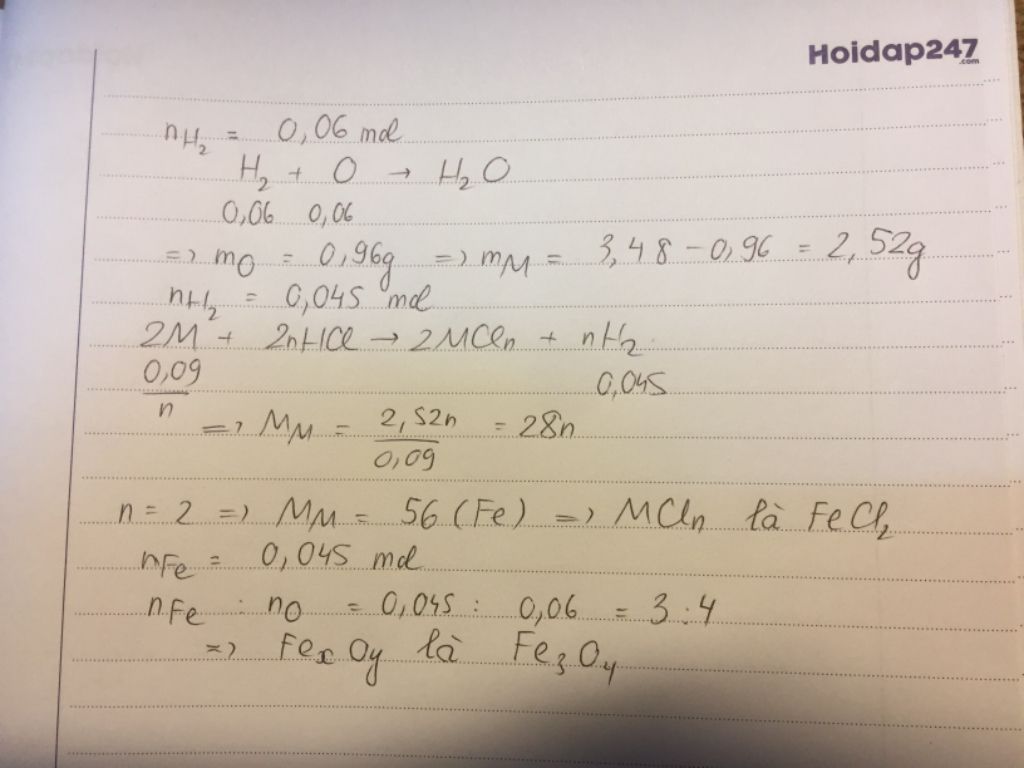 Hoidap247
.com
nH2 = 0,06 mol
H2 + O → H2O
0,06 0,06
=> mO = 0,96g => mM = 3,48 - 0,96 = 2,52g
nH2 = 0,045 mol
2M + 2nHCl → 2MCln + nH2
0,09/n 0,045
=> MM = 2,52n/0,09 = 28n
n = 2 => MM = 56 (Fe) => MCln là FeCl2
nFe = 0,045 mol
nFe : nO = 0,045 : 0,06 = 3:4
=> FexOy là Fe3O4